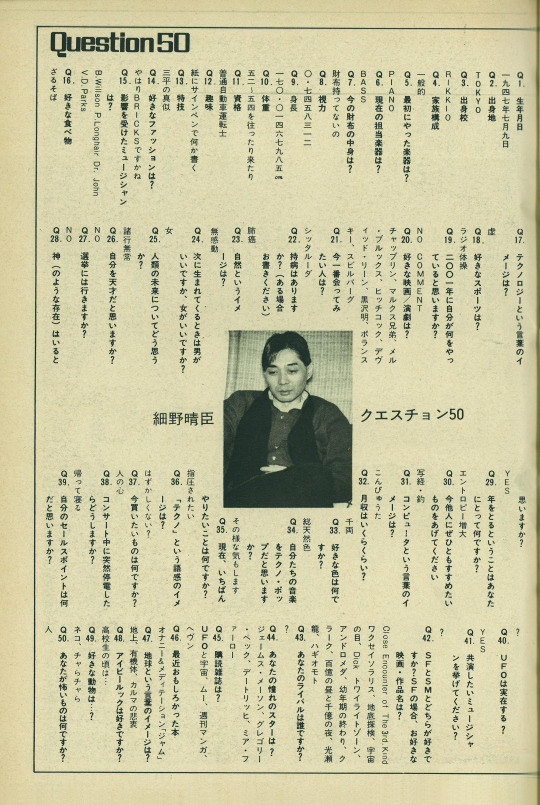 Question 50
Q1. 生年月日
一九四七年七月九日
Q2. 出身地
TOKYO
Q3. 出身校
RIKKIO
Q4. 家族構成
一般的
Q5. 最初にやった楽器は?
PIANO
Q6. 現在の担当楽器は?
BASS
Q7. 今の財布の中身は?
財布持ってないの
Q8. 視力
〇・七四五八三一二
Q9. 身長
一七〇・〇一四六七九八五㎝
Q10. 体重
五二~五四を往ったり来たり
Q11. 資格
普通自動車運転士
Q12. 趣味
紙にサインペンで何か書く
Q13. 特技
三平の真似
Q14. 好きなファッションは?
やはりBRICKSですかね
Q15. 影響を受けたミュージシャン
は?
B.Willson P.Longhair Dr. John
V.D.Parks
Q16. 好きな食べ物
ざるそば
Q17. テクノロジーという言葉のイ
メージは?
虚
Q18. 好きなスポーツは?
ラジオ体操
Q19. 二〇〇一年に自分が何をやっ
ていると思いますか?
NO COMMENT
Q20. 好きな映画/演劇は?
チャップリン、マルクス兄弟、メル
・ブルックス、ヒッチコック、デヴ
ィッド・リーン、黒沢明、ポランス
キー、スピルバーグ
Q21. 今一番会ってみ
たい人は?
シッダルータ
Q22. 持病はあります
か?(ある場合
お書きください)
肺癌
Q23. 自然というイメ
ージは?
無感動
Q24. 次に生まれてくるときは男が
いいですか、女がいいですか?
女
Q25. 人類の未来についてどう思う
か?
諸行無常
Q26. 自分を天才だと思いますか?
NO
Q27. 選挙には行きますか?
NO
Q28. 神(のような存在)はいると
思いますか?
YES
クエスチョン50
細野晴臣
Q29. 年をとるということはあなた
にとって何ですか?
エントロピー増大
Q30. 今他人にぜひともすすめたい
ものをあげてください
写経・釣
Q31. コンピュータという言葉のイ
メージは?
こんぴゅうた
Q32. 月収はいくらくらい?
千両
Q33. 好きな色は何で
すか?
総天然色
Q34. 自分たちの音楽
をテクノ・ポッ
プだと思います
か?
その様な気もします
Q35. 現在、いちばん
やりたいことは何ですか?
指圧されたい
Q36. 「テクノ」という語感のイメ
ージは?
はずかしくない?
Q37. 今買いたいものは何ですか?
人の心
Q38. コンサート中に突然停電した
らどうしますか?
帰って寝る
Q39. 自分のセールスポイントは何
だと思いますか?
?
Q40. UFOは実在する?
YES
Q41. 共演したいミュージシャ
ンを挙げてください?
?
Q42. SFとSMとどちらが好きで
すか?SFの場合、お好きな
映画・作品名は?
Close Encounter of The 3rd Kind
ワクセイソラリス、地底探検、宇宙
の目、Dick、トワイライトゾーン、
アンドロメダ、幼年期の終わり、ク
ラーク、百億の昼と千億の夜、光瀬
龍、ハギオモト
Q43. あなたのライバルは誰ですか?
?
Q44. あなたの憧れのスターは?
ジェームス・メーソン、グレゴリー
・ペック、デートリッヒ、ミア・フ
ァーロー
Q45. 購読雑誌は?
UFOと宇宙、ムー、週刊マンガ、
ヘヴン
Q46. 最近おもしろかった本
オナニー&メディテーション「ジャム」
Q47. 地球という言葉のイメージは?
地上、有機体、カルマの悲哀
Q48. アイビールックは好きですか?
高校生の頃は…
Q49. 好きな動物は…?
ネコ、チャらチャら
Q50. あなたが怖いものは何ですか?
人